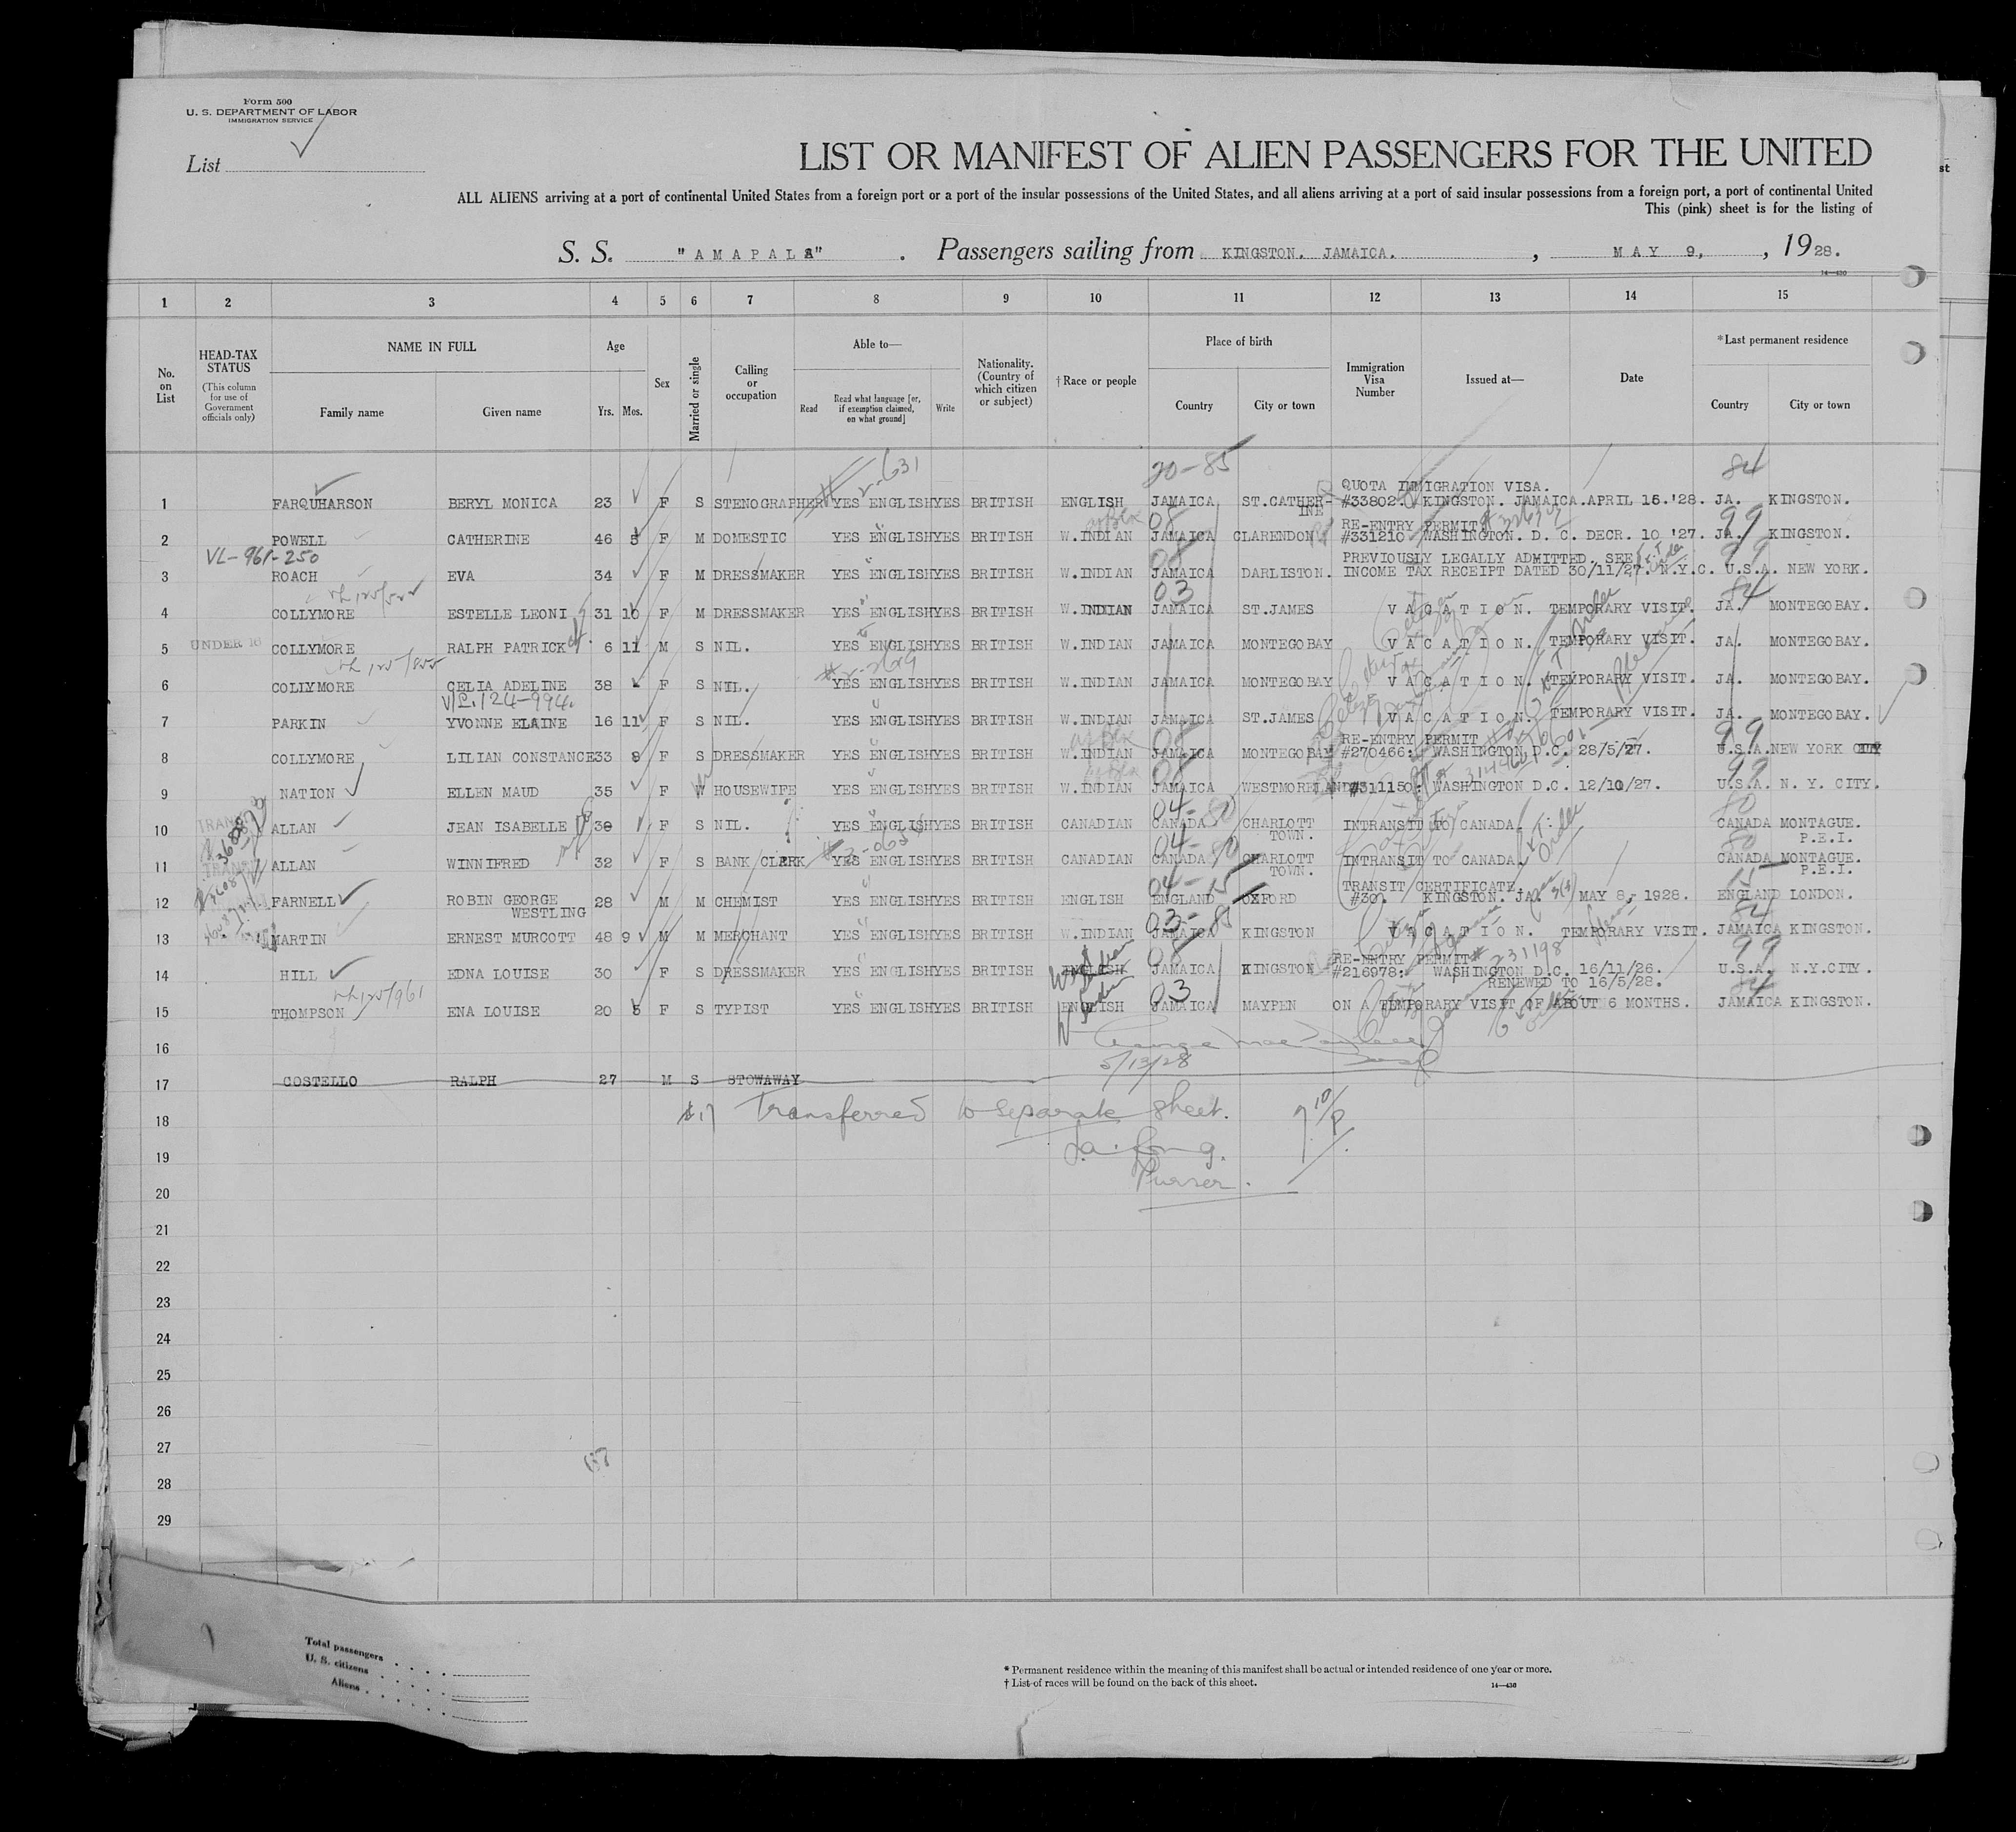 Form 500
U. S. DEPARTMENT OF LABOR
IMMIGRATION SERVICE
List
LIST OR MANIFEST OF ALIEN PASSENGERS FOR THE UNITED
ALL ALIENS arriving at a port of continental United States from a foreign port or a port of the insular possessions of the United States, and all aliens arriving at a port of said insular possessions from a foreign port, a port of continental United
This (pink) sheet is for the listing of
S. S. "AMAPALA" . Passengers sailing from KINGSTON. JAMAICA. , MAY 9, , 1928.
14—430
1 2 3 4 5 6 7 8 9 10 11 12 13 14 15
No. on List
HEAD-TAX STATUS
(This column for use of Government officials only)
NAME IN FULL
Family name Given name
Age
Yrs. Mos.
Sex
Married or single
Calling or occupation
Able to—
Read
Read what language [or, if exemption claimed, on what ground]
Write
Nationality. (Country of which citizen or subject)
† Race or people
Place of birth
Country City or town
Immigration Visa Number
Issued at—
Date
* Last permanent residence
Country City or town
20-85 84
2-631
QUOTA IMMIGRATION VISA.
1 FARQUHARSON BERYL MONICA 23 F S STENOGRAPHER YES ENGLISH YES BRITISH ENGLISH JAMAICA ST.CATHER- #33802. KINGSTON. JAMAICA. APRIL 16.'28. JA. KINGSTON.
INE
08 RE-ENTRY PERMIT 99
2 POWELL CATHERINE 46 5 F M DOMESTIC YES ENGLISH YES BRITISH W.INDIAN JAMAICA CLARENDON #331210 WASHINGTON. D. C. DECR. 10 '27. JA. KINGSTON.
VL-961-250 08 PREVIOUSLY LEGALLY ADMITTED. SEE 99
3 ROACH EVA 34 F M DRESSMAKER YES ENGLISH YES BRITISH W.INDIAN JAMAICA DARLISTON. INCOME TAX RECEIPT DATED 30/11/27. N.Y.C. U.S.A. NEW YORK.
03 84
4 COLLYMORE ESTELLE LEONI 31 10 F M DRESSMAKER YES ENGLISH YES BRITISH W.INDIAN JAMAICA ST.JAMES VACATION. TEMPORARY VISIT. JA. MONTEGO BAY.
UNDER 16
5 COLLYMORE RALPH PATRICK 6 11 M S NIL. YES ENGLISH YES BRITISH W.INDIAN JAMAICA MONTEGO BAY VACATION. TEMPORARY VISIT. JA. MONTEGO BAY.
6 COLLYMORE CELIA ADELINE 38 F S NIL. YES ENGLISH YES BRITISH W.INDIAN JAMAICA MONTEGO BAY VACATION. TEMPORARY VISIT. JA. MONTEGO BAY.
VL.124-994.
7 PARKIN YVONNE ELAINE 16 11 F S NIL. YES ENGLISH YES BRITISH W.INDIAN JAMAICA ST.JAMES VACATION. TEMPORARY VISIT. JA. MONTEGO BAY.
08 RE-ENTRY PERMIT 99
8 COLLYMORE LILIAN CONSTANCE 33 8 F S DRESSMAKER YES ENGLISH YES BRITISH W.INDIAN JAMAICA MONTEGO BAY #270466: WASHINGTON D.C. 28/5/27. U.S.A. NEW YORK CITY
08 99
9 NATION ELLEN MAUD 35 F W HOUSEWIFE YES ENGLISH YES BRITISH W.INDIAN JAMAICA WESTMORELAND #311150: WASHINGTON D.C. 12/10/27. U.S.A. N. Y. CITY.
04-80 80
10 ALLAN JEAN ISABELLE 39 F S NIL. YES ENGLISH YES BRITISH CANADIAN CANADA CHARLOTT INTRANSIT TO CANADA. CANADA MONTAGUE.
TOWN. P.E.I.
04-80 80
11 ALLAN WINNIFRED 32 F S BANK CLERK YES ENGLISH YES BRITISH CANADIAN CANADA CHARLOTT INTRANSIT TO CANADA. CANADA MONTAGUE.
TOWN. P.E.I.
04-15 TRANSIT CERTIFICATE. 15
12 FARNELL ROBIN GEORGE 28 M M CHEMIST YES ENGLISH YES BRITISH ENGLISH ENGLAND OXFORD #30. KINGSTON. JA. MAY 8, 1928. ENGLAND LONDON.
WESTLING
03-85 84
13 MARTIN ERNEST MURCOTT 48 9 M M MERCHANT YES ENGLISH YES BRITISH W.INDIAN JAMAICA KINGSTON VACATION. TEMPORARY VISIT. JAMAICA KINGSTON.
08 RE-ENTRY PERMIT #231198 99
14 HILL EDNA LOUISE 30 F S DRESSMAKER YES ENGLISH YES BRITISH ENGLISH JAMAICA KINGSTON #216978: WASHINGTON D.C. 16/11/26. U.S.A. N.Y.CITY.
RENEWED TO 16/5/28.
03 84
15 THOMPSON ENA LOUISE 20 5 F S TYPIST YES ENGLISH YES BRITISH ENGLISH JAMAICA MAYPEN ON A TEMPORARY VISIT OF ABOUT 6 MONTHS. JAMAICA KINGSTON.
16
5/13/28
17 COSTELLO RALPH 27 M S STOWAWAY
Transferred to separate sheet.
18
19
Purser.
20
21
22
23
24
25
26
27
28
29
Total passengers
U. S. citizens
Aliens
* Permanent residence within the meaning of this manifest shall be actual or intended residence of one year or more.
† List of races will be found on the back of this sheet.
14—430